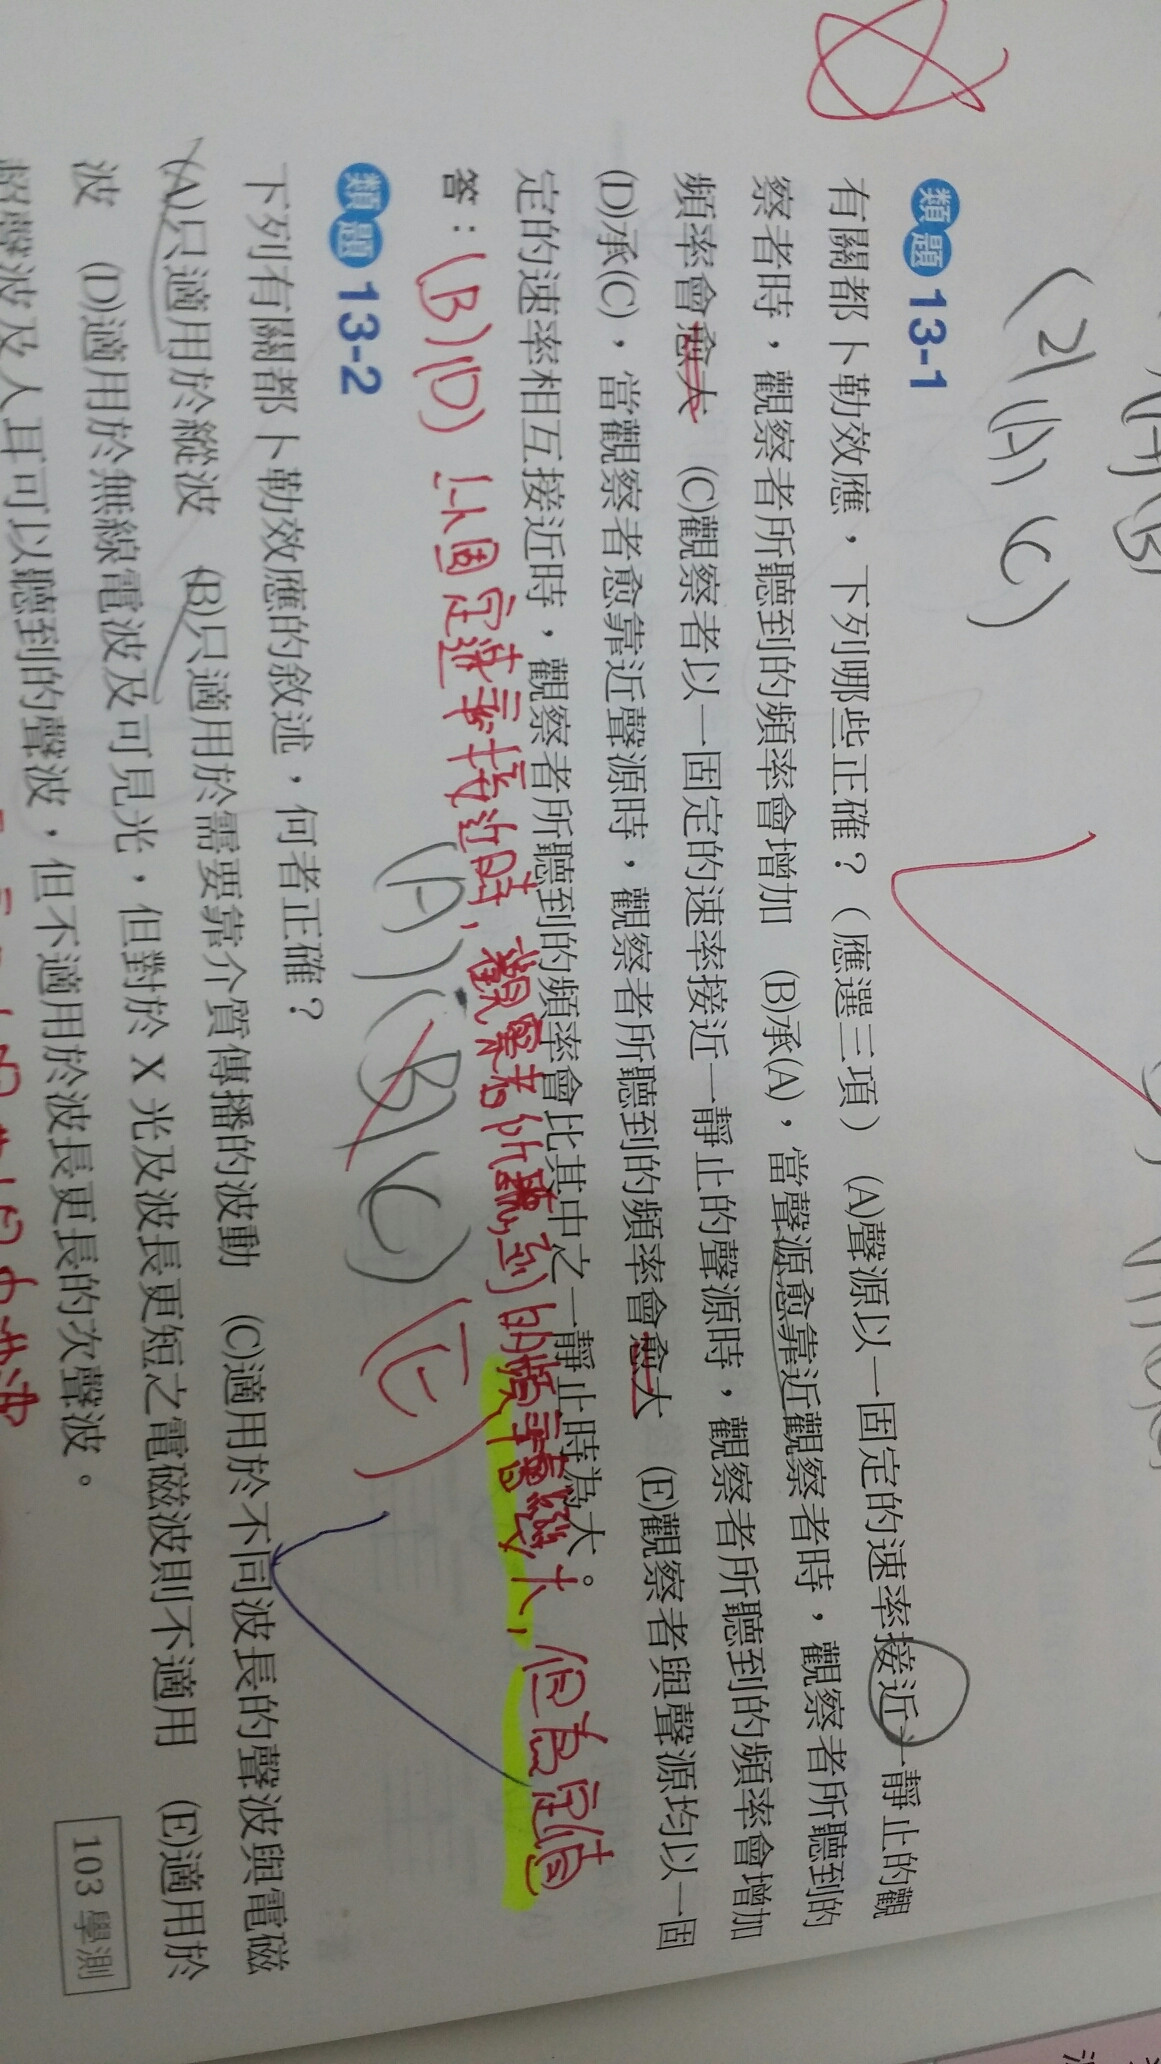 (2)(A)(C)
類題 13-1
有關都卜勒效應，下列哪些正確？（應選三項） (A)聲源以一固定的速率接近一靜止的觀
察者時，觀察者所聽到的頻率會增加 (B)承(A)，當聲源愈靠近觀察者時，觀察者所聽到的
頻率會愈大 (C)觀察者以一固定的速率接近一靜止的聲源時，觀察者所聽到的頻率會增加
(D)承(C)，當觀察者愈靠近聲源時，觀察者所聽到的頻率會愈大 (E)觀察者與聲源均以一固
定的速率相互接近時，觀察者所聽到的頻率會比其中之一靜止時為大。
答：(B)(D) 以固定速率接近時，觀察者所聽到的頻率會變大，但為定值
(A)(B)(C)(E)
類題 13-2
下列有關都卜勒效應的敘述，何者正確？
(A)只適用於縱波 (B)只適用於需要靠介質傳播的波動 (C)適用於不同波長的聲波與電磁
波 (D)適用於無線電波及可見光，但對於 X 光及波長更短之電磁波則不適用 (E)適用於
超聲波及人耳可以聽到的聲波，但不適用於波長更長的次聲波。
103 學測